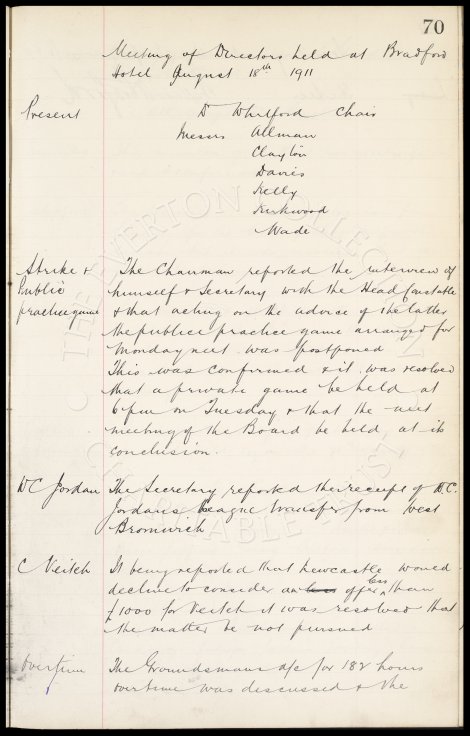 70
Meeting of Directors held at Bradford
Hotel August 18th 1911
Present Dr Whitford Chair
Messrs Allman
Clayton
Davies
Kelly
Kirkwood
Wade
Strike & The Chairman reported the interview of
Public himself & Secretary with the Head Constable
practice game & that acting on the advice of the latter
the public practice game arranged for
Monday next was postponed
This was confirmed & it was resolved
that a private game be held at
6 pm on Tuesday & that the next
meeting of the Board be held at its
conclusion.
WC Jordan The Secretary reported the receipt of W.C.
Jordan's League transfer from West
Bromwich
C Veitch It being reported that Newcastle would
decline to consider an less offer less than
£1000 for Veitch it was resolved that
the matter be not pursued
Overtime The Groundsmans a/c for 182 hours
overtime was discussed & the
THE EVERTON COLLECTION CHARITABLE TRUST